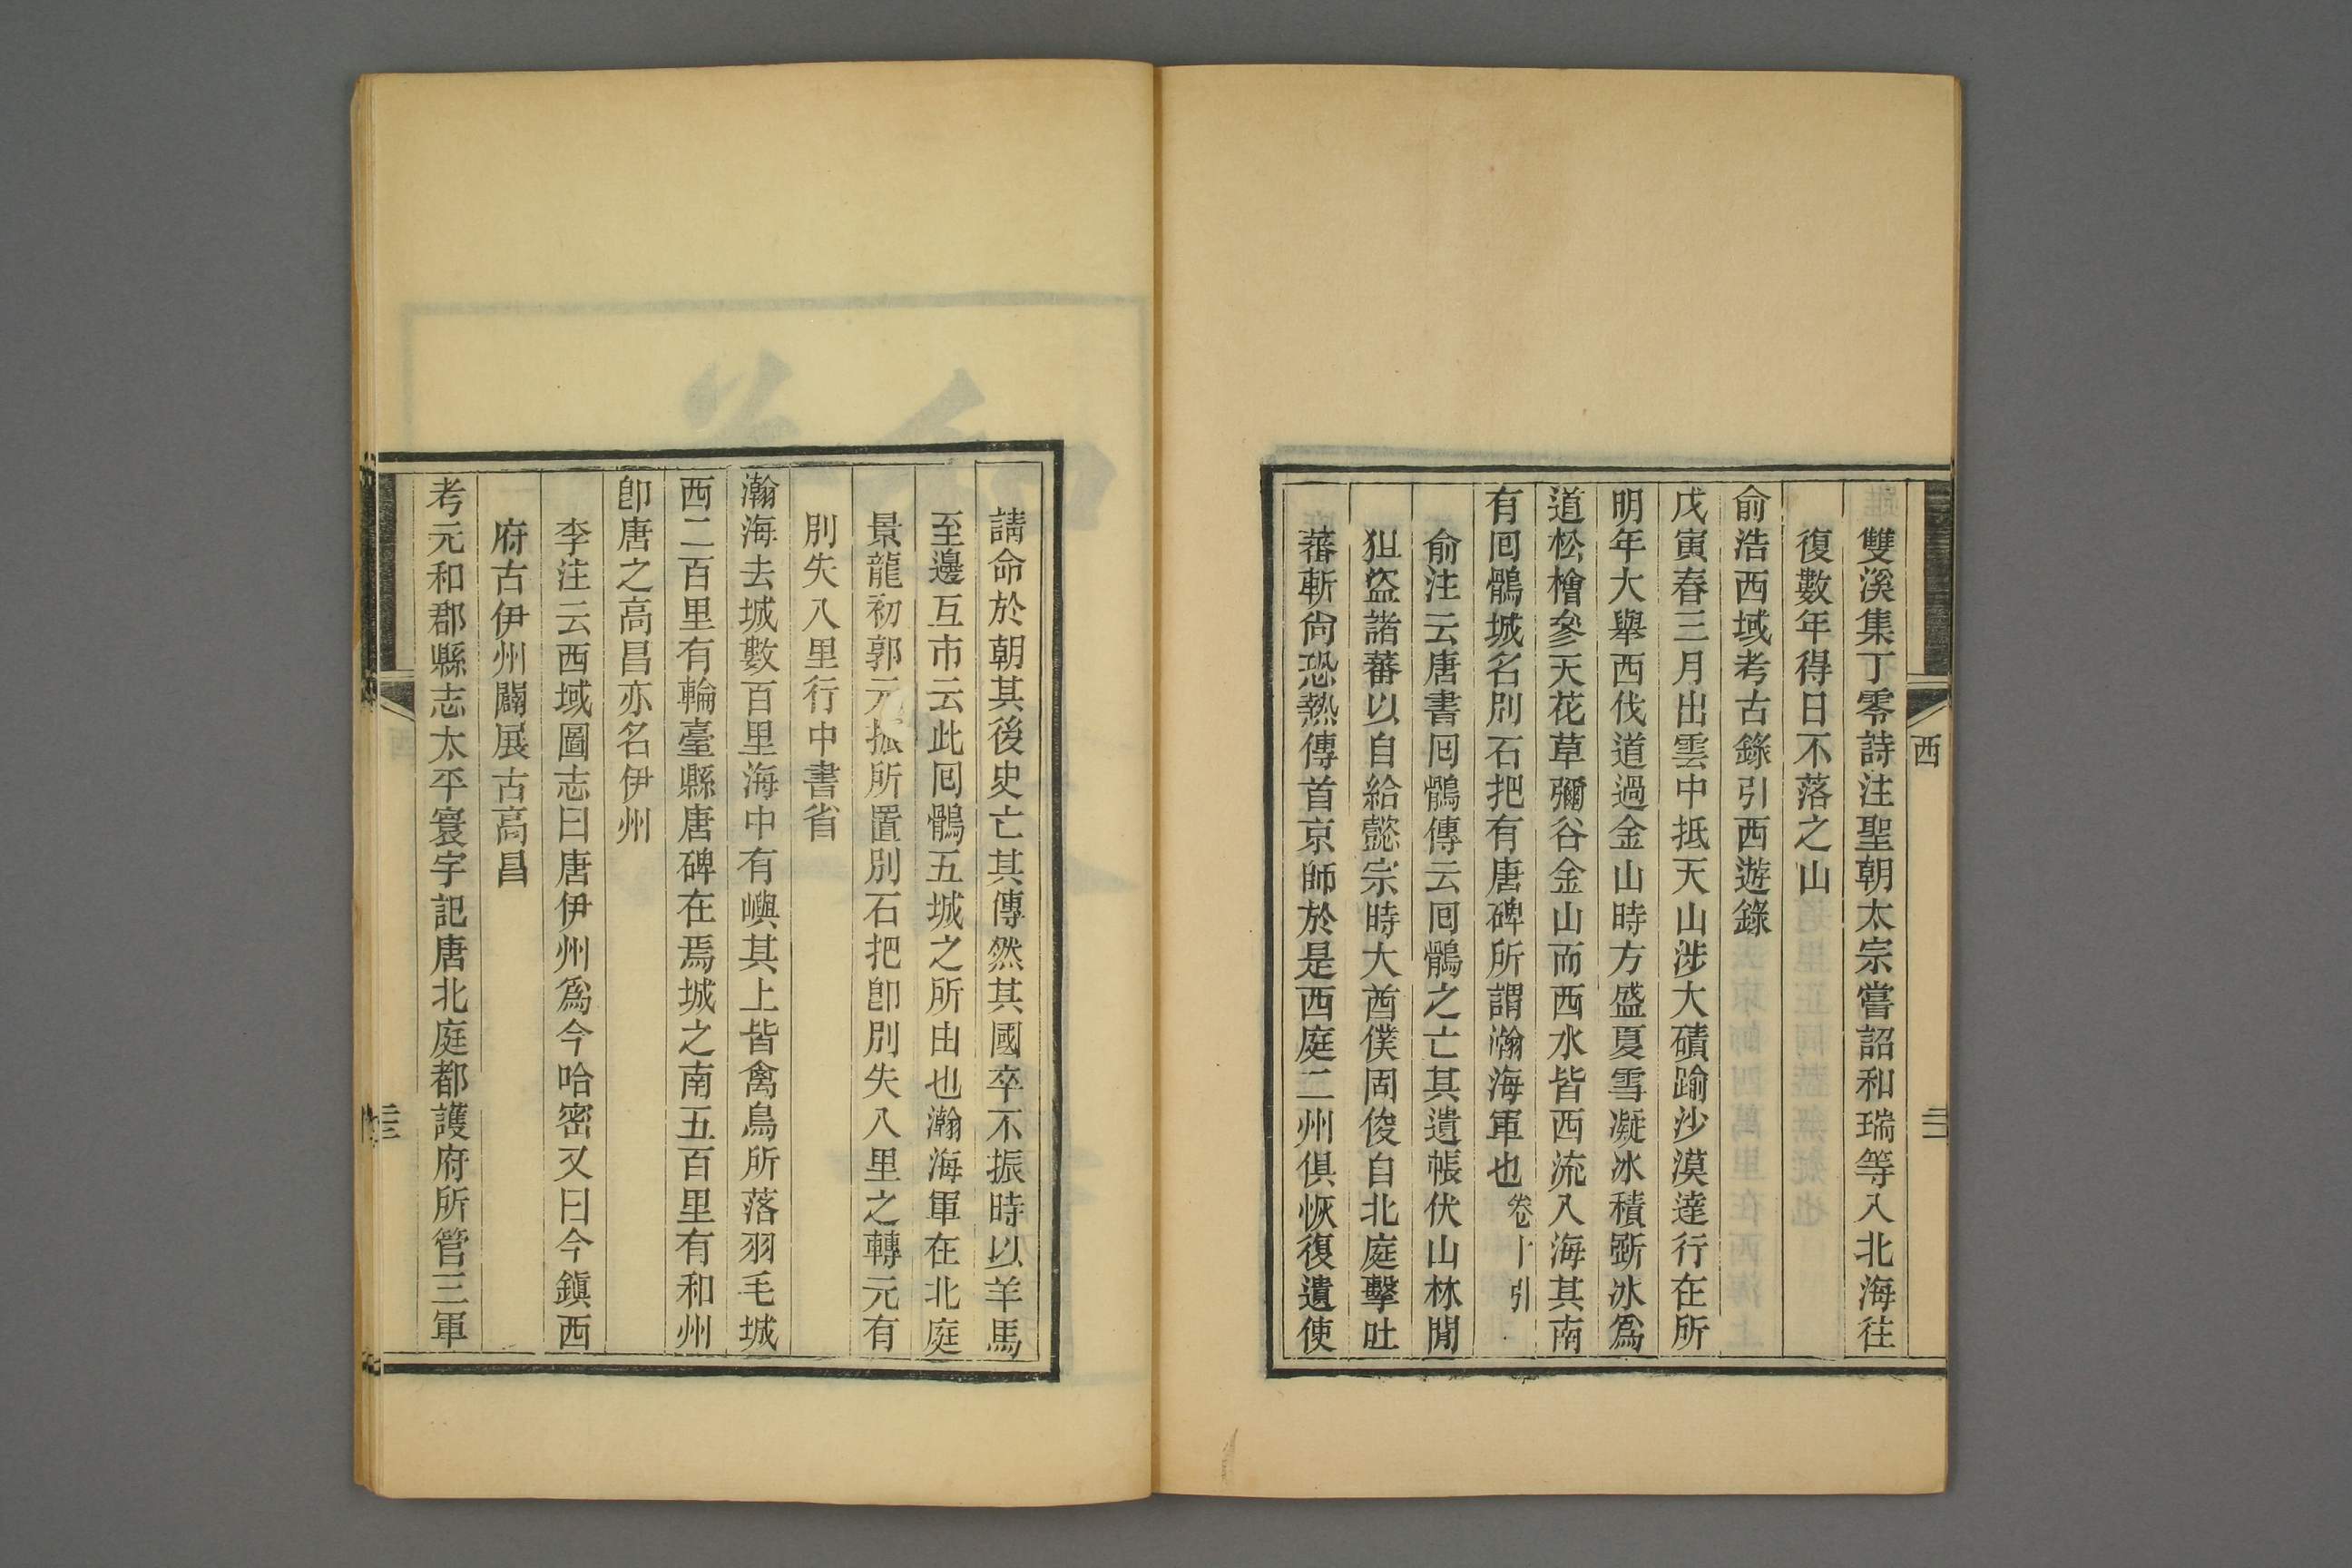 雙溪集丁零詩注聖朝太宗嘗詔和瑞等入北海往
復數年得日不落之山
俞浩西域考古錄引西遊錄
戊寅春三月出雲中抵天山涉大磧踰沙漠達行在所
明年大舉西伐道過金山時方盛夏雪凝冰積斲冰爲
道松檜參天花草彌谷金山而西水皆西流入海其南
有回鶻城名別石把有唐碑所謂瀚海軍也卷十引
俞注云唐書回鶻傳云回鶻之亡其遺帳伏山林閒
狙盜諸蕃以自給懿宗時大酋僕固俊自北庭擊吐
蕃斬尙恐熱傳首京師於是西庭二州俱恢復遺使
西
三二
請命於朝其後史亡其傳然其國卒不振時以羊馬
至邊互市云此回鶻五城之所由也瀚海軍在北庭
景龍初郭元振所置別石把卽別失八里之轉元有
別失八里行中書省
瀚海去城數百里海中有嶼其上皆禽鳥所落羽毛城
西二百里有輪臺縣唐碑在焉城之南五百里有和州
卽唐之高昌亦名伊州
李注云西域圖志曰唐伊州爲今哈密又曰今鎭西
府古伊州闢展古高昌
考元和郡縣志太平寰宇記唐北庭都護府所管三軍